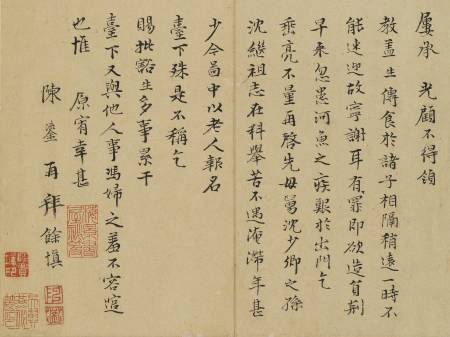 屢承 光顧不得領
教蓋生傳食於諸子相隔稍遠一時不
能送迎故寧謝耳有罪即欲造負荊
早來忽患河魚之疾艱於出門乞
垂亮不量再啓先母舅沈少卿之孫
沈繼祖志在科舉苦不遇淹滯年甚
少今啚中以老人報名
臺下殊是不稱乞
賜批豁生多事累干
臺下又與他人事馮婦之羞不容逭
也惟 原宥幸甚
陳鎏再拜 餘